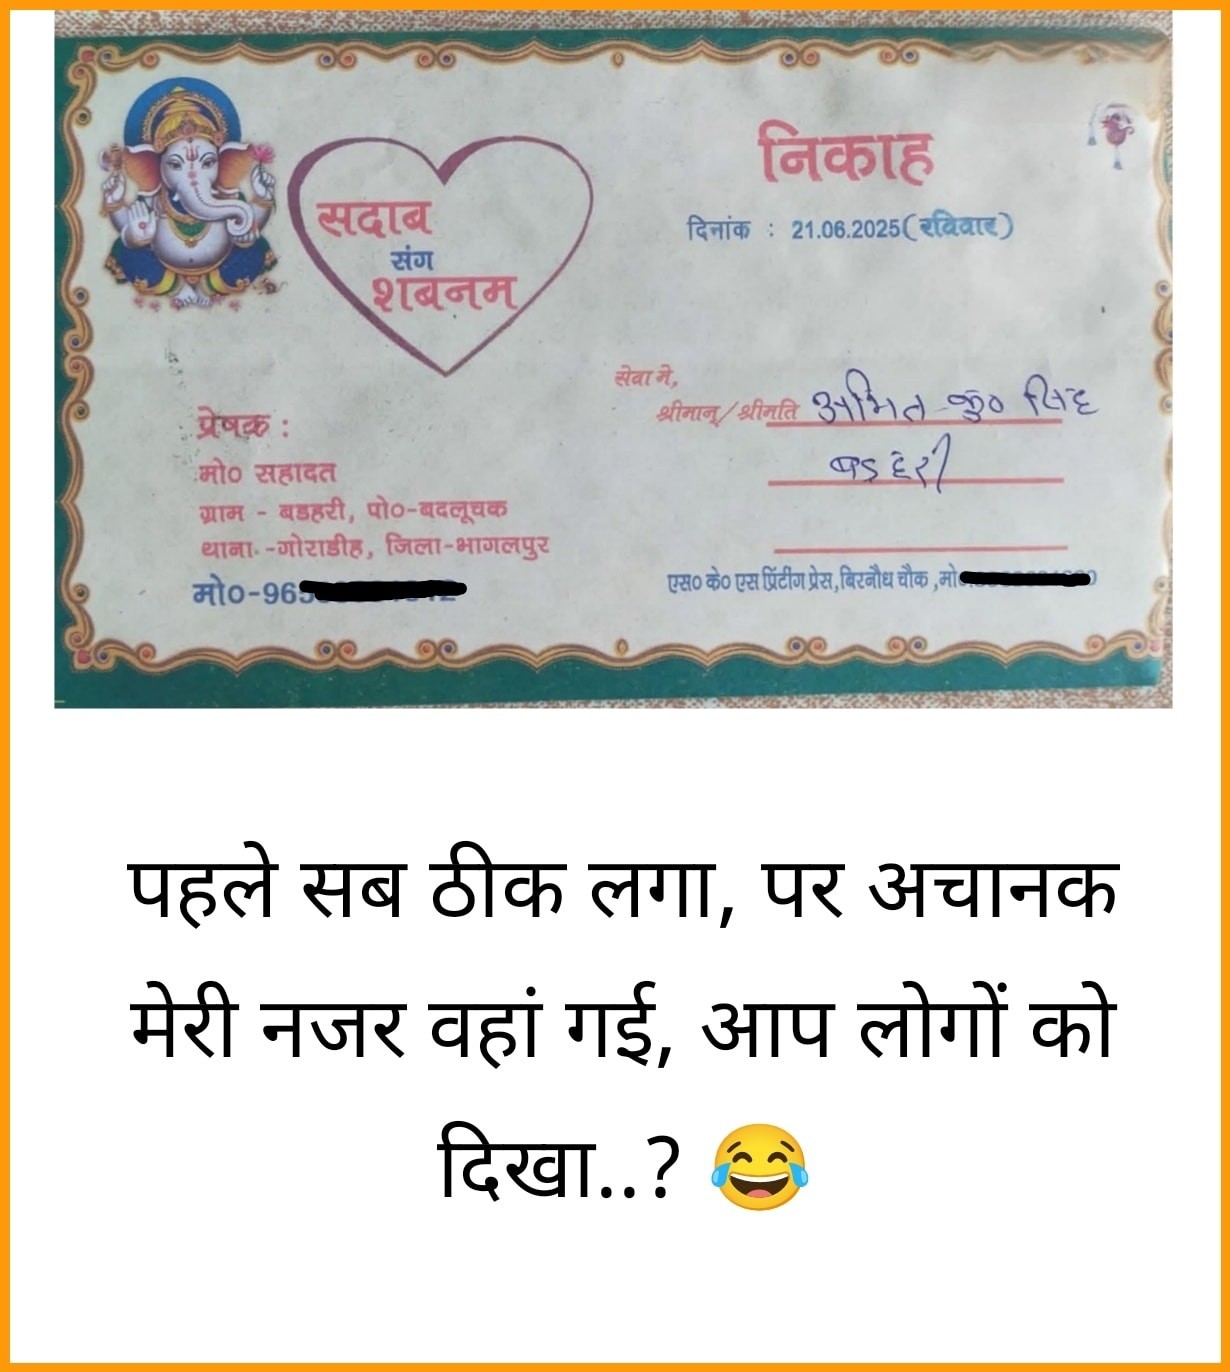 सदाब
संग
शबनम
निकाह
दिनांक : 21.06.2025(रविवार)
सेवा मे,
श्रीमान्/श्रीमति अमित कु० सिंह
बडहरी
प्रेषक :
मो० सहादत
ग्राम - बडहरी, पो०-बदलूचक
थाना.-गोराडीह, जिला-भागलपुर
मो०-965
एस० के० एस प्रिंटींग प्रेस,बिरनौध चौक ,मो
पहले सब ठीक लगा, पर अचानक
मेरी नजर वहां गई, आप लोगों को
दिखा..? 😂